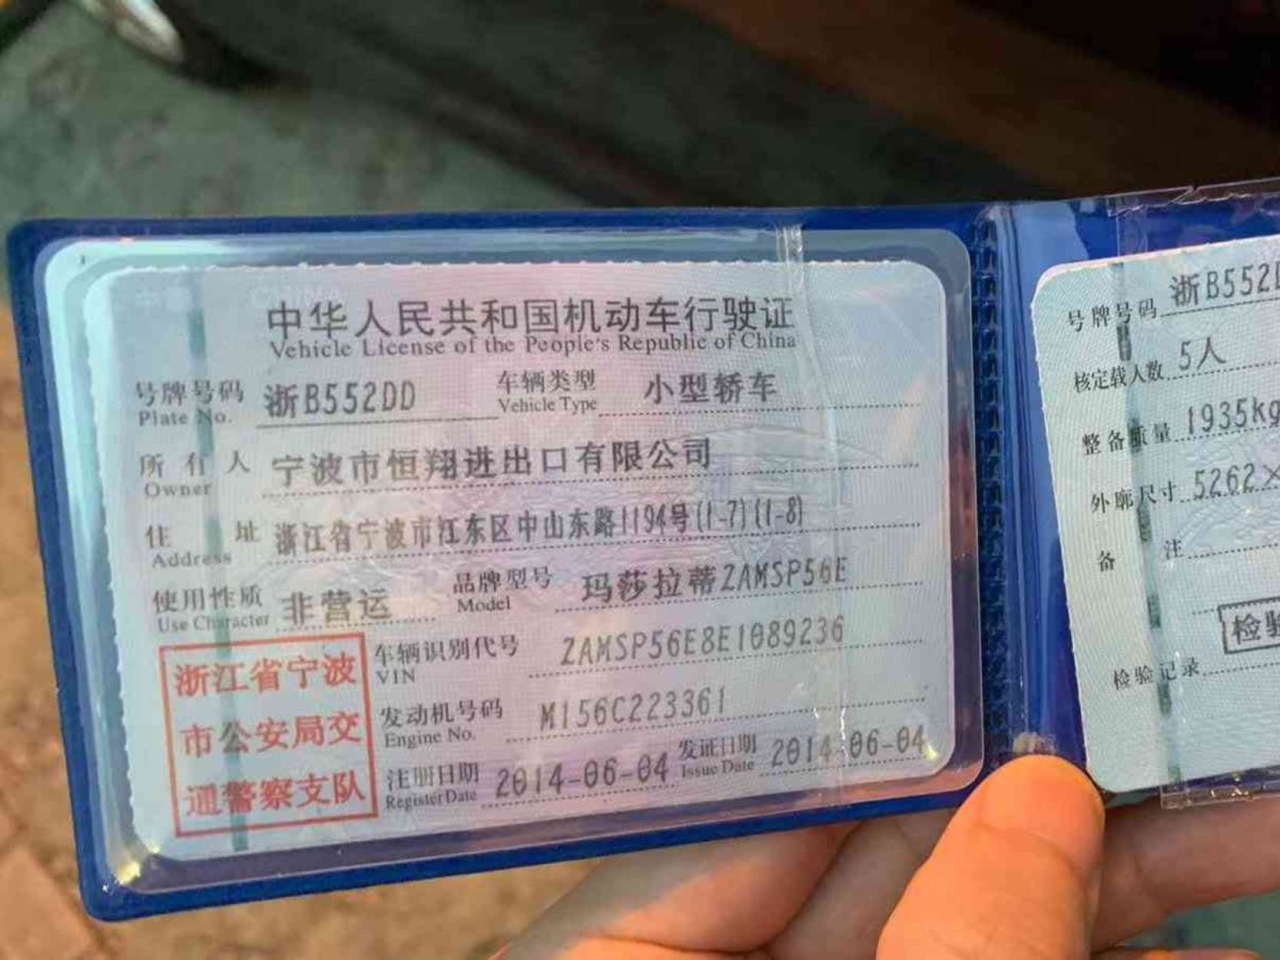 中华人民共和国机动车行驶证
Vehicle License of the People's Republic of China
号牌号码 浙B552DD 车辆类型 小型轿车
Plate No. Vehicle Type
所有人 宁波市恒翔进出口有限公司
Owner
住址 浙江省宁波市江东区中山东路1194号(1-7)(1-8)
Address
使用性质 非营运 品牌型号 玛莎拉蒂ZAMSP56E
Use Character Model
车辆识别代号 ZAMSP56E8E1089236
VIN
发动机号码 M156C223361
Engine No.
注册日期 2014-06-04 发证日期 2014-06-04
Register Date Issue Date
浙江省宁波
市公安局交
通警察支队
号牌号码 浙B552D
核定载人数 5人
整备质量 1935kg
外廓尺寸 5262×
备注
检验
检验记录